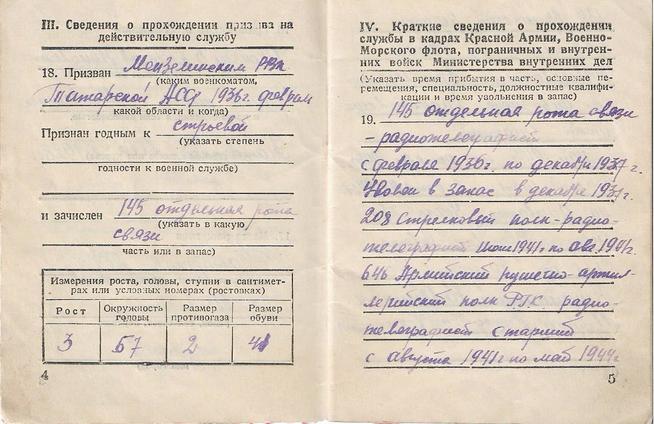 III. Сведения о прохождении призыва на
действительную службу
18. Призван Мензелинским РВК
(каким военкоматом,
Татарской АССР 1936г. феврал
какой области и когда)
Признан годным к строевой
(указать степень
годности к военной службе)
и зачислен 145 отдельная рота
(указать в какую
связи
часть или в запас)
Измерения роста, головы, ступни в сантимет-
рах или условных номерах (ростовках)
Рост Окружность головы Размер противогаза Размер обуви
3 57 2 41
4
IV. Краткие сведения о прохождении
службы в кадрах Красной Армии, Военно-
Морского флота, пограничных и внутрен-
них войск Министерства внутренних дел
(Указать время прибытия в часть, основные пе-
ремещения, специальность, должностные квалифи-
кации и время увольнения в запас)
19. 145 отдельная рота связи
-радиотелеграфист
с февраля 1936г. по декабрь 1937г.
Уволен в запас в декабре 1937г.
208 Стрелковый полк-радио-
телеграфист 1941г по авг. 1941г.
646 Армейский пушечно-артил-
лерийский полк РГК радио-
телеграфист старший
с августа 1941г по май 1944г
5